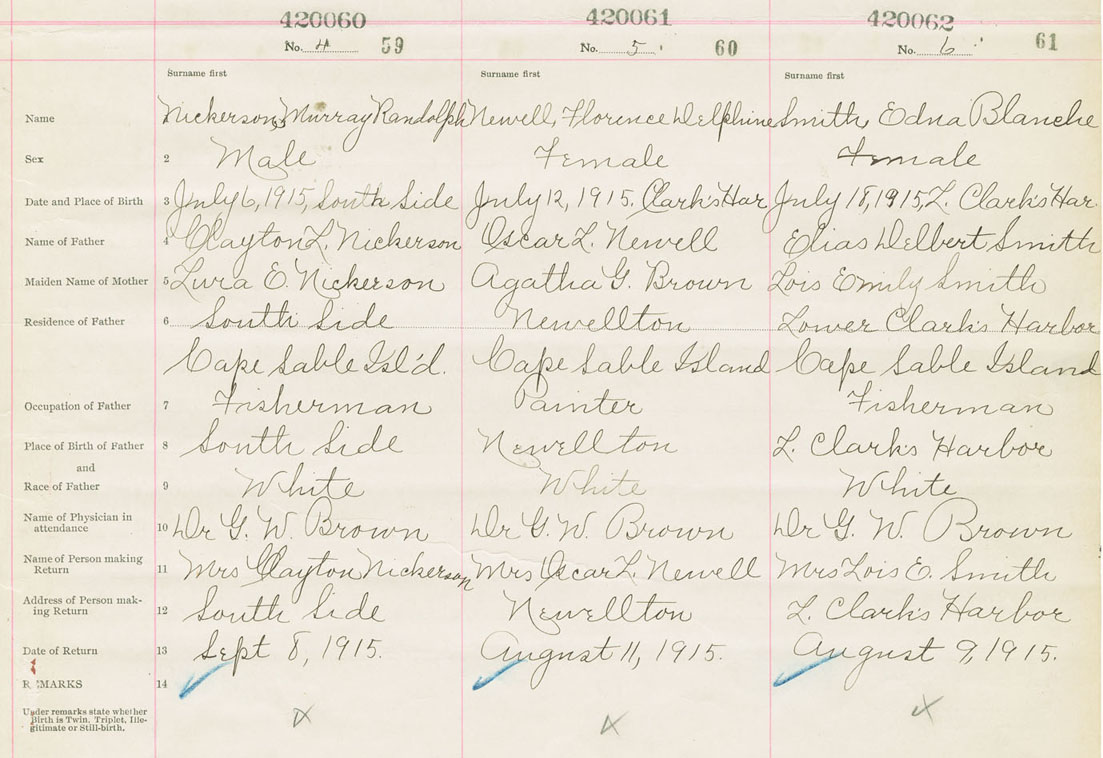 420060 420061 420062
No. 4 59 No. 5 60 No. 6 61
Surname first Surname first Surname first
Name Nickerson, Murray Randolph Newell, Florence Delphine Smith, Edna Blanche
Sex 2 Male Female Female
Date and Place of Birth 3 July 6, 1915, South Side July 12, 1915. Clark's Har July 18, 1915, L. Clark's Har.
Name of Father 4 Clayton L. Nickerson Oscar L. Newell Elias Delbert Smith
Maiden Name of Mother 5 Lura E. Nickerson Agatha G. Brown Lois Emily Smith
Residence of Father 6 South Side Newellton Lower Clark's Harbor
Cape Sable Isl'd. Cape Sable Island Cape Sable Island
Occupation of Father 7 Fisherman Painter Fisherman
Place of Birth of Father 8 South Side Newellton L. Clark's Harbor
and
Race of Father 9 White White White
Name of Physician in
attendance 10 Dr G. W. Brown Dr G. W. Brown Dr G. W. Brown
Name of Person making
Return 11 Mrs Clayton Nickerson Mrs Oscar L. Newell Mrs Lois E. Smith
Address of Person mak-
ing Return 12 South Side Newellton L. Clark's Harbor
Date of Return 13 Sept 8, 1915. August 11, 1915. August 9, 1915.
REMARKS 14
Under remarks state whether
Birth is Twin, Triplet, Ille-
gitimate or Still-birth.